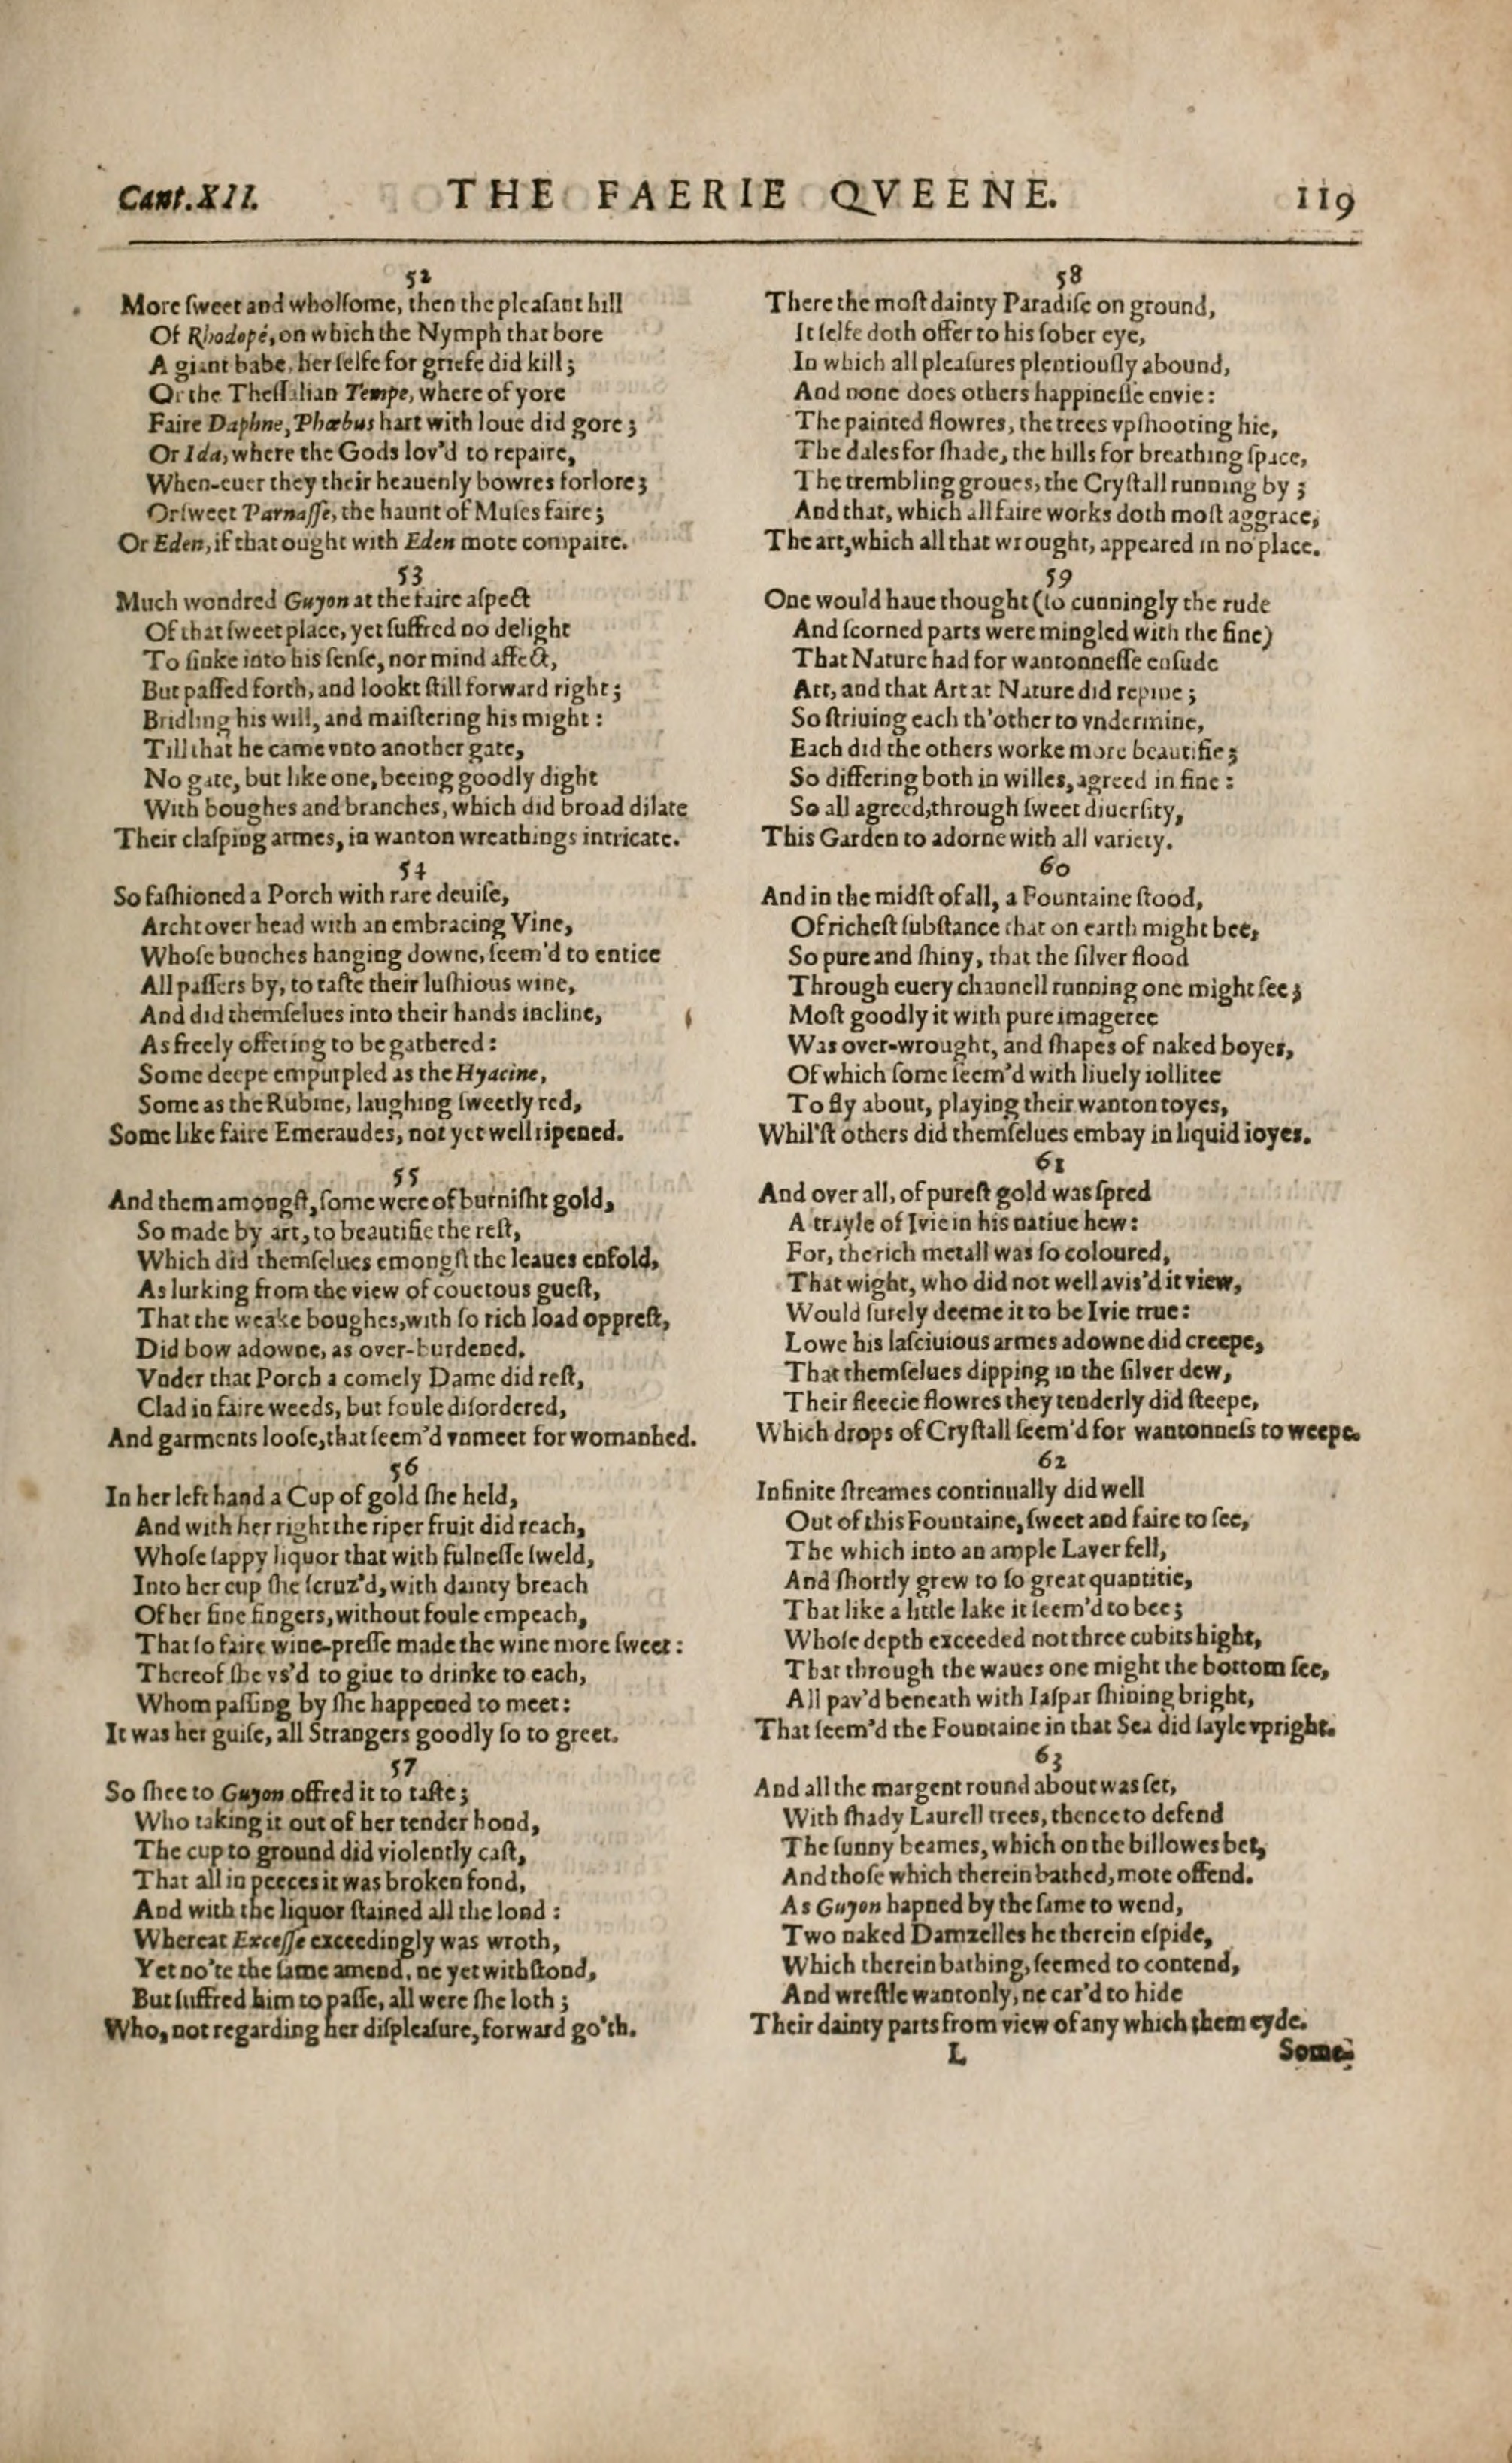 Cant.XII. THE FAERIE QVEENE. 119
52
More ſweet and wholſome, then the pleaſant hill
Of Rhodopé, on which the Nymph that bore
A giant babe, her ſelfe for griefe did kill;
Or the Theſſalian Tempe, where of yore
Faire Daphne, Phœbus hart with loue did gore;
Or Ida, where the Gods lov'd to repaire,
When-euer they their heauenly bowres forlore;
Or ſweet Parnaſſe, the haunt of Muſes faire;
Or Eden, if that ought with Eden mote compaire.
53
Much wondred Guyon at the faire aſpect
Of that ſweet place, yet ſuffred no delight
To ſinke into his ſenſe, nor mind affect,
But paſſed forth, and lookt ſtill forward right;
Bridling his will, and maiſtering his might:
Till that he came vnto another gate,
No gate, but like one, beeing goodly dight
With boughes and branches, which did broad dilate
Their claſping armes, in wanton wreathings intricate.
54
So faſhioned a Porch with rare deuiſe,
Archt over head with an embracing Vine,
Whoſe bunches hanging downe, ſeem'd to entice
All paſſers by, to taſte their luſhious wine,
And did themſelues into their hands incline,
As freely offering to be gathered:
Some deepe empurpled as the Hyacine,
Some as the Rubine, laughing ſweetly red,
Some like faire Emeraudes, not yet well ripened.
55
And them amongſt, ſome were of burniſht gold,
So made by art, to beautifie the reſt,
Which did themſelues emongſt the leaues enfold,
As lurking from the view of couetous gueſt,
That the weake boughes, with ſo rich load oppreſt,
Did bow adowne, as over-burdened.
Vnder that Porch a comely Dame did reſt,
Clad in faire weeds, but foule diſordered,
And garments looſe, that ſeem'd vnmeet for womanhed.
56
In her left hand a Cup of gold ſhe held,
And with her right the riper fruit did reach,
Whoſe ſappy liquor that with fulneſſe ſweld,
Into her cup ſhe ſcruz'd, with dainty breach
Of her fine fingers, without foule empeach,
That ſo faire wine-preſſe made the wine more ſweet:
Thereof ſhe vs'd to giue to drinke to each,
Whom paſſing by ſhe happened to meet:
It was her guiſe, all Strangers goodly ſo to greet.
57
So ſhee to Guyon offred it to taſte;
Who taking it out of her tender hond,
The cup to ground did violently caſt,
That all in peeces it was broken fond,
And with the liquor ſtained all the lond:
Whereat Exceſſe exceedingly was wroth,
Yet no'te the ſame amend, ne yet withſtond,
But ſuffred him to paſſe, all were ſhe loth;
Who, not regarding her diſpleaſure, forward go'th.
58
There the moſt dainty Paradiſe on ground,
It ſelfe doth offer to his ſober eye,
In which all pleaſures plentiouſly abound,
And none does others happineſſe envie:
The painted flowres, the trees vpſhooting hie,
The dales for ſhade, the hills for breathing ſpace,
The trembling groues, the Cryſtall running by;
And that, which all faire works doth moſt aggrace,
The art, which all that wrought, appeared in no place.
59
One would haue thought (ſo cunningly the rude
And ſcorned parts were mingled with the fine)
That Nature had for wantonneſſe enſude
Art, and that Art at Nature did repine;
So ſtriuing each th'other to vndermine,
Each did the others worke more beautifie;
So differing both in willes, agreed in fine:
So all agreed, through ſweet diuerſity,
This Garden to adorne with all variety.
60
And in the midſt of all, a Fountaine ſtood,
Of richeſt ſubſtance that on earth might bee,
So pure and ſhiny, that the ſilver flood
Through euery channell running one might ſee;
Moſt goodly it with pure imageree
Was over-wrought, and ſhapes of naked boyes,
Of which ſome ſeem'd with liuely iollitee
To fly about, playing their wanton toyes,
Whil'ſt others did themſelues embay in liquid ioyes.
61
And over all, of pureſt gold was ſpred
A trayle of Ivie in his natiue hew:
For, the rich metall was ſo coloured,
That wight, who did not well avis'd it view,
Would ſurely deeme it to be Ivie true:
Lowe his laſciuious armes adowne did creepe,
That themſelues dipping in the ſilver dew,
Their fleecie flowres they tenderly did ſteepe,
Which drops of Cryſtall ſeem'd for wantonneſs to weepe.
62
Infinite ſtreames continually did well
Out of this Fountaine, ſweet and faire to ſee,
The which into an ample Laver fell,
And ſhortly grew to ſo great quantitie,
That like a little lake it ſeem'd to bee;
Whoſe depth exceeded not three cubits hight,
That through the waues one might the bottom ſee,
All pav'd beneath with Iaſpar ſhining bright,
That ſeem'd the Fountaine in that Sea did ſayle vpright.
63
And all the margent round about was ſet,
With ſhady Laurell trees, thence to defend
The ſunny beames, which on the billowes bet,
And thoſe which therein bathed, mote offend.
As Guyon hapned by the ſame to wend,
Two naked Damzelles he therein eſpide,
Which therein bathing, ſeemed to contend,
And wreſtle wantonly, ne car'd to hide
Their dainty parts from view of any which them eyde.
L Some-